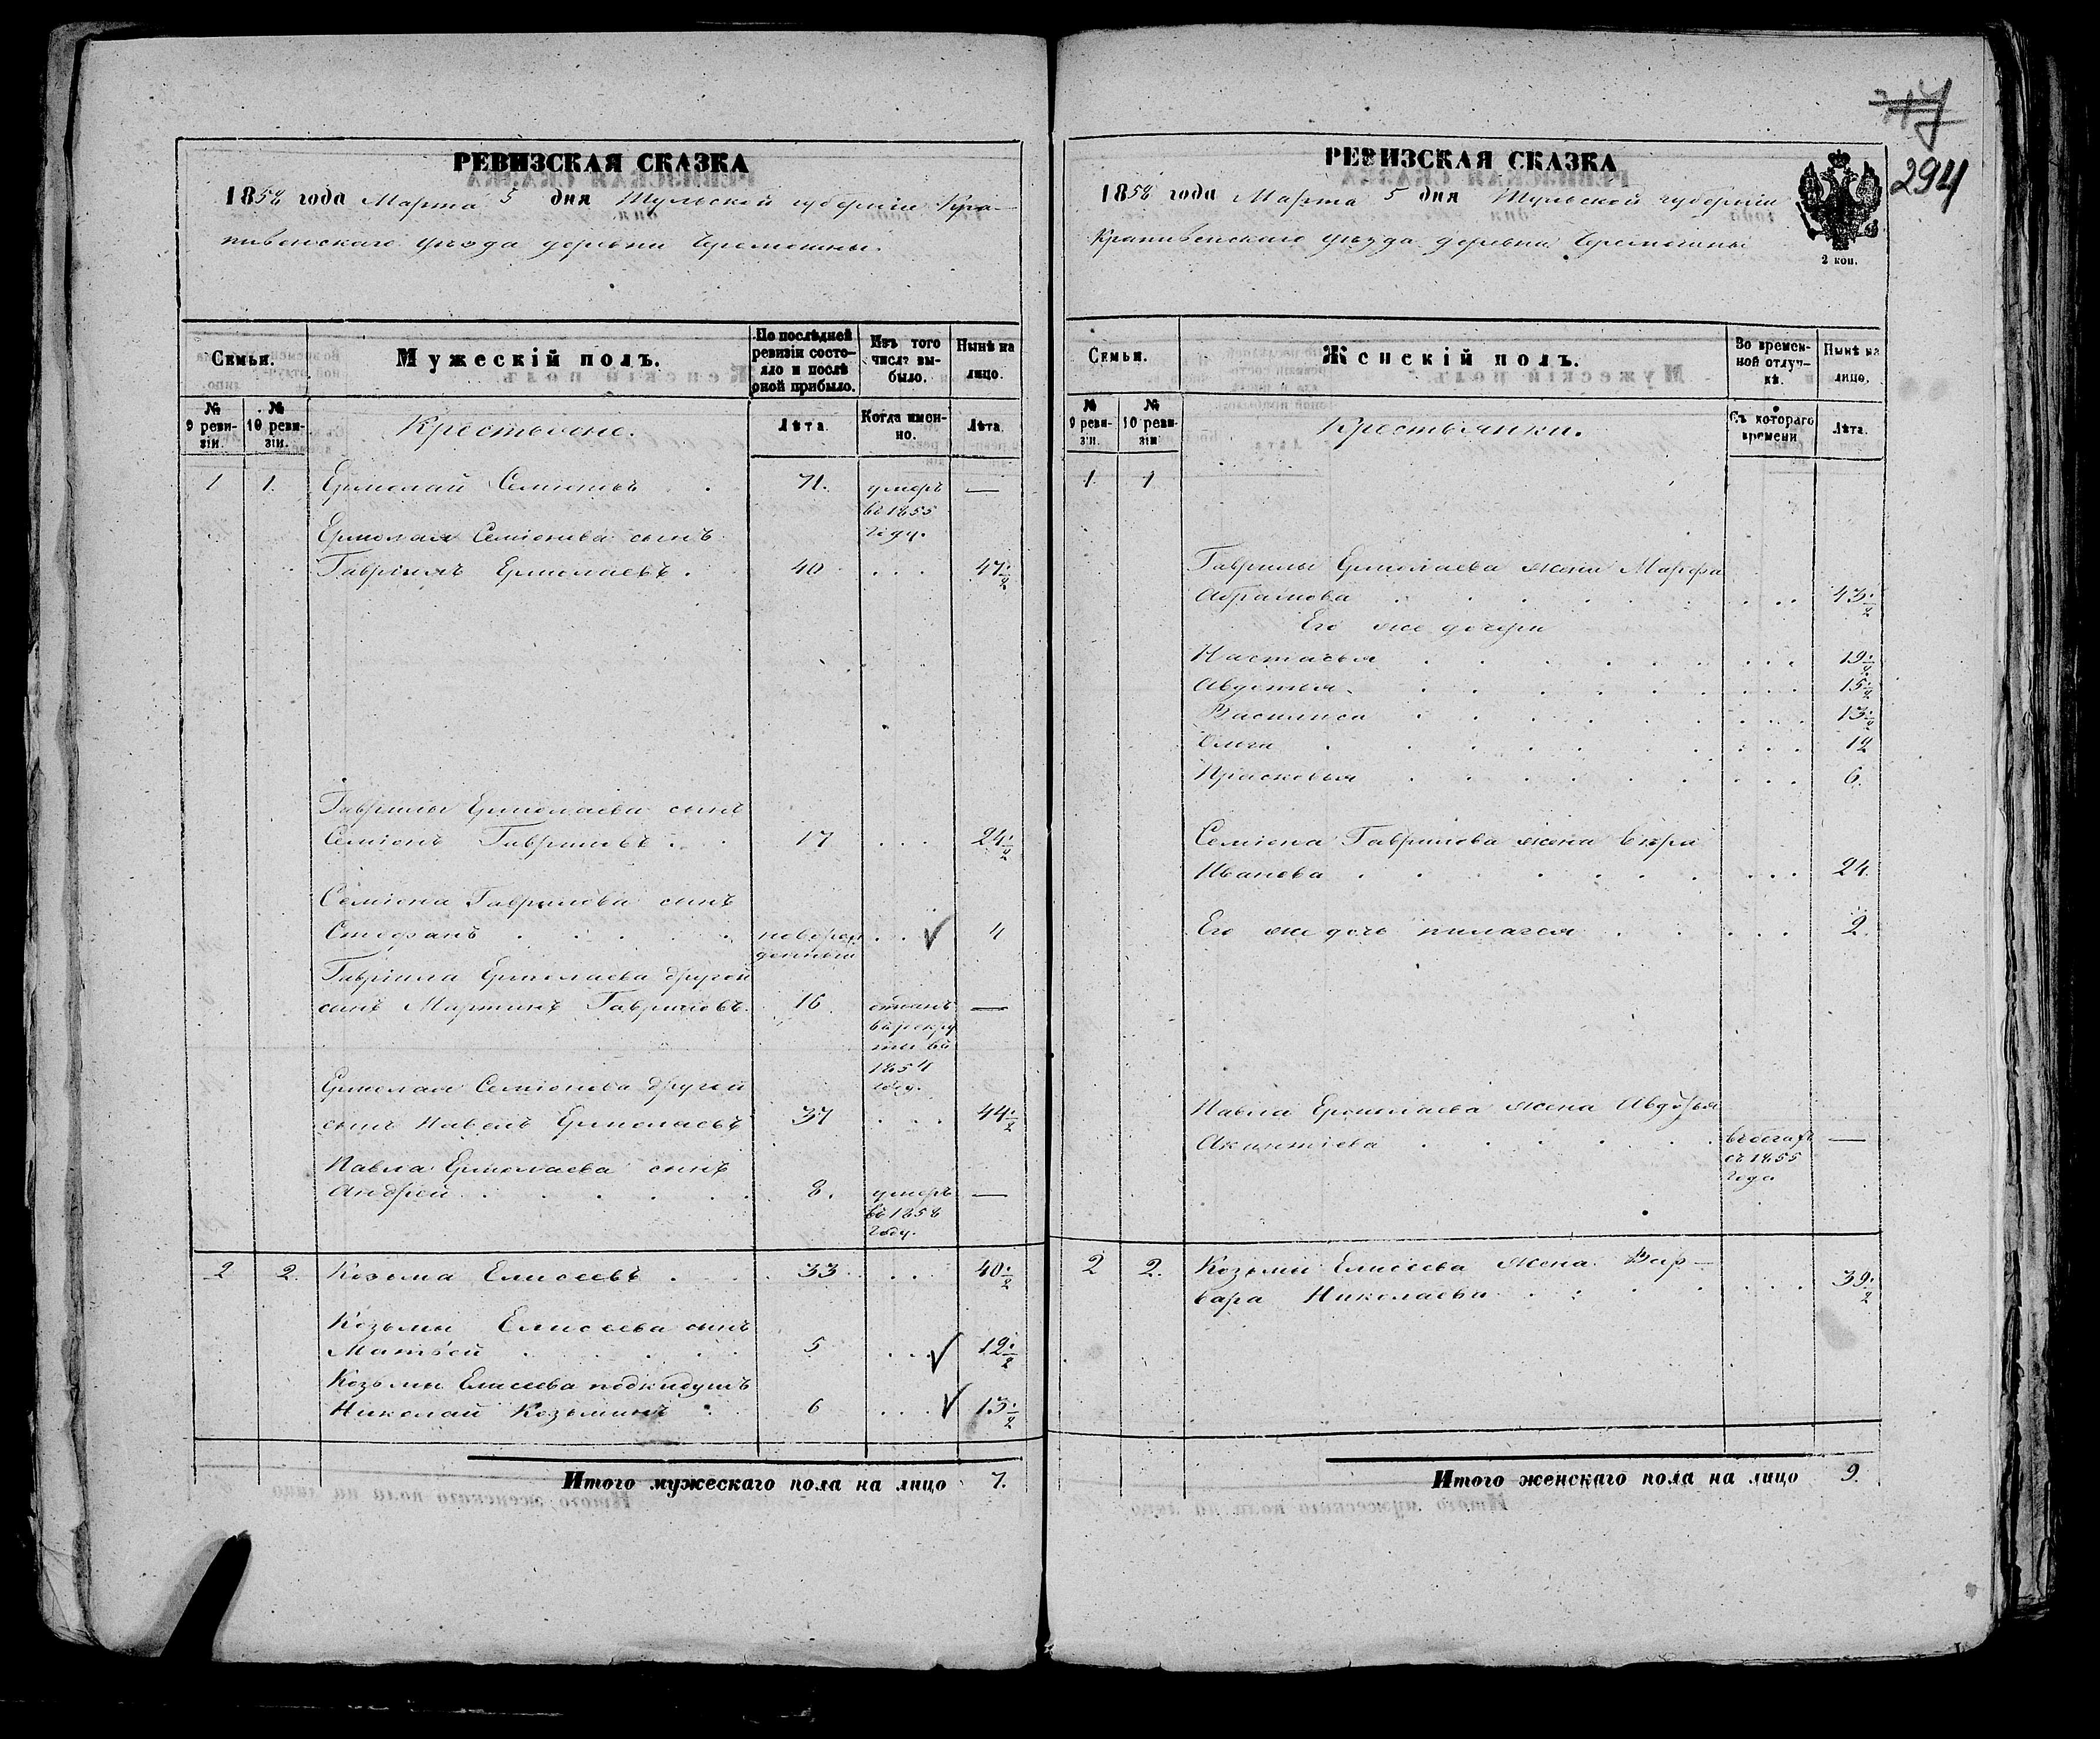 РЕВИЗСКАЯ СКАЗКА
1858 года Марта 5 дня Тульской губерніи Кра-
пивенскаго уѣзда деревни Черемошны.
Семьи.
Мужескій полъ.
По послѣдней ревизіи состо-
яло и послѣ оной прибыло.
Изъ того числа вы-
было.
Нынѣ на лицо.
№ 9 реви-
зіи.
№ 10 реви-
зіи.
Крестьяне.
Лѣта.
Когда имен-
но.
Лѣта.
1 1. Ермолай Семіоновъ . . 71. умеръ —
въ 1855
Ермолая Семіонова сынъ году.
Гаврилъ Ермолаевъ . 40 . . . 47 1/2
Гаврилы Ермолаева сынъ
Семіонъ Гавриловъ . . 17 . . . 24 1/2
Семіона Гаврилова сынъ
Стефанъ . . . . . новорож- . . √ 4
денный
Гаврила Ермолаева другой
сынъ Мартинъ Гавриловъ. 16. отданъ —
въ рекру
ты въ
1854
Ермолая Семіонова другой году.
сынъ Павелъ Ермолаевъ 37 . . . 44 1/2
Павла Ермолаева сынъ
Андрей . . . . . . 8. умеръ —
въ 1858
году.
2 2. Козьма Елисеевъ . . . 33 . . . 40 1/2
Козьмы Елисеева сынъ
Матвей . . . . . 5 . . . √ 12 1/2
Козьмы Елисеева подкидушъ
Николай Козьминъ . 6 . . . √ 13 1/2
Итого мужескаго пола на лицо 7.
294
РЕВИЗСКАЯ СКАЗКА
1858 года Марта 5 дня Тульской губерніи
Крапивенскаго уѣзда деревни Черемошны
2 коп.
Семьи.
Женскій полъ.
Во времен-
ной отлуч-
кѣ.
Нынѣ на лицо.
№ 9 реви-
зіи.
№ 10 реви-
зіи.
Крестьянки.
Съ котораго времени
Лѣта.
1 1
Гаврилы Ермолаева жена Марфа
Абрамова . . . . . . . . . 43 1/2
Его же дочери
Настасья . . . . . . . . . 19 1/2
Авдотья . . . . . . . . . 15 1/2
Василиса . . . . . . . . . 13 1/2
Ольга . . . . . . . . . 12
Прасковья . . . . . . . . . 6.
Семіона Гаврилова жена
Иванова . . . . . . . . . 24.
Его же дочь пилагея . . . . . 2.
Павла Ермолаева жена Авдотья
Акинтіева . . . . . въ бегахъ —
съ 1855
года
2 2. Козьмы Елисеева жена Вар-
вара Николаева . . . . . . . 39 1/2
Итого женскаго пола на лицо 9.